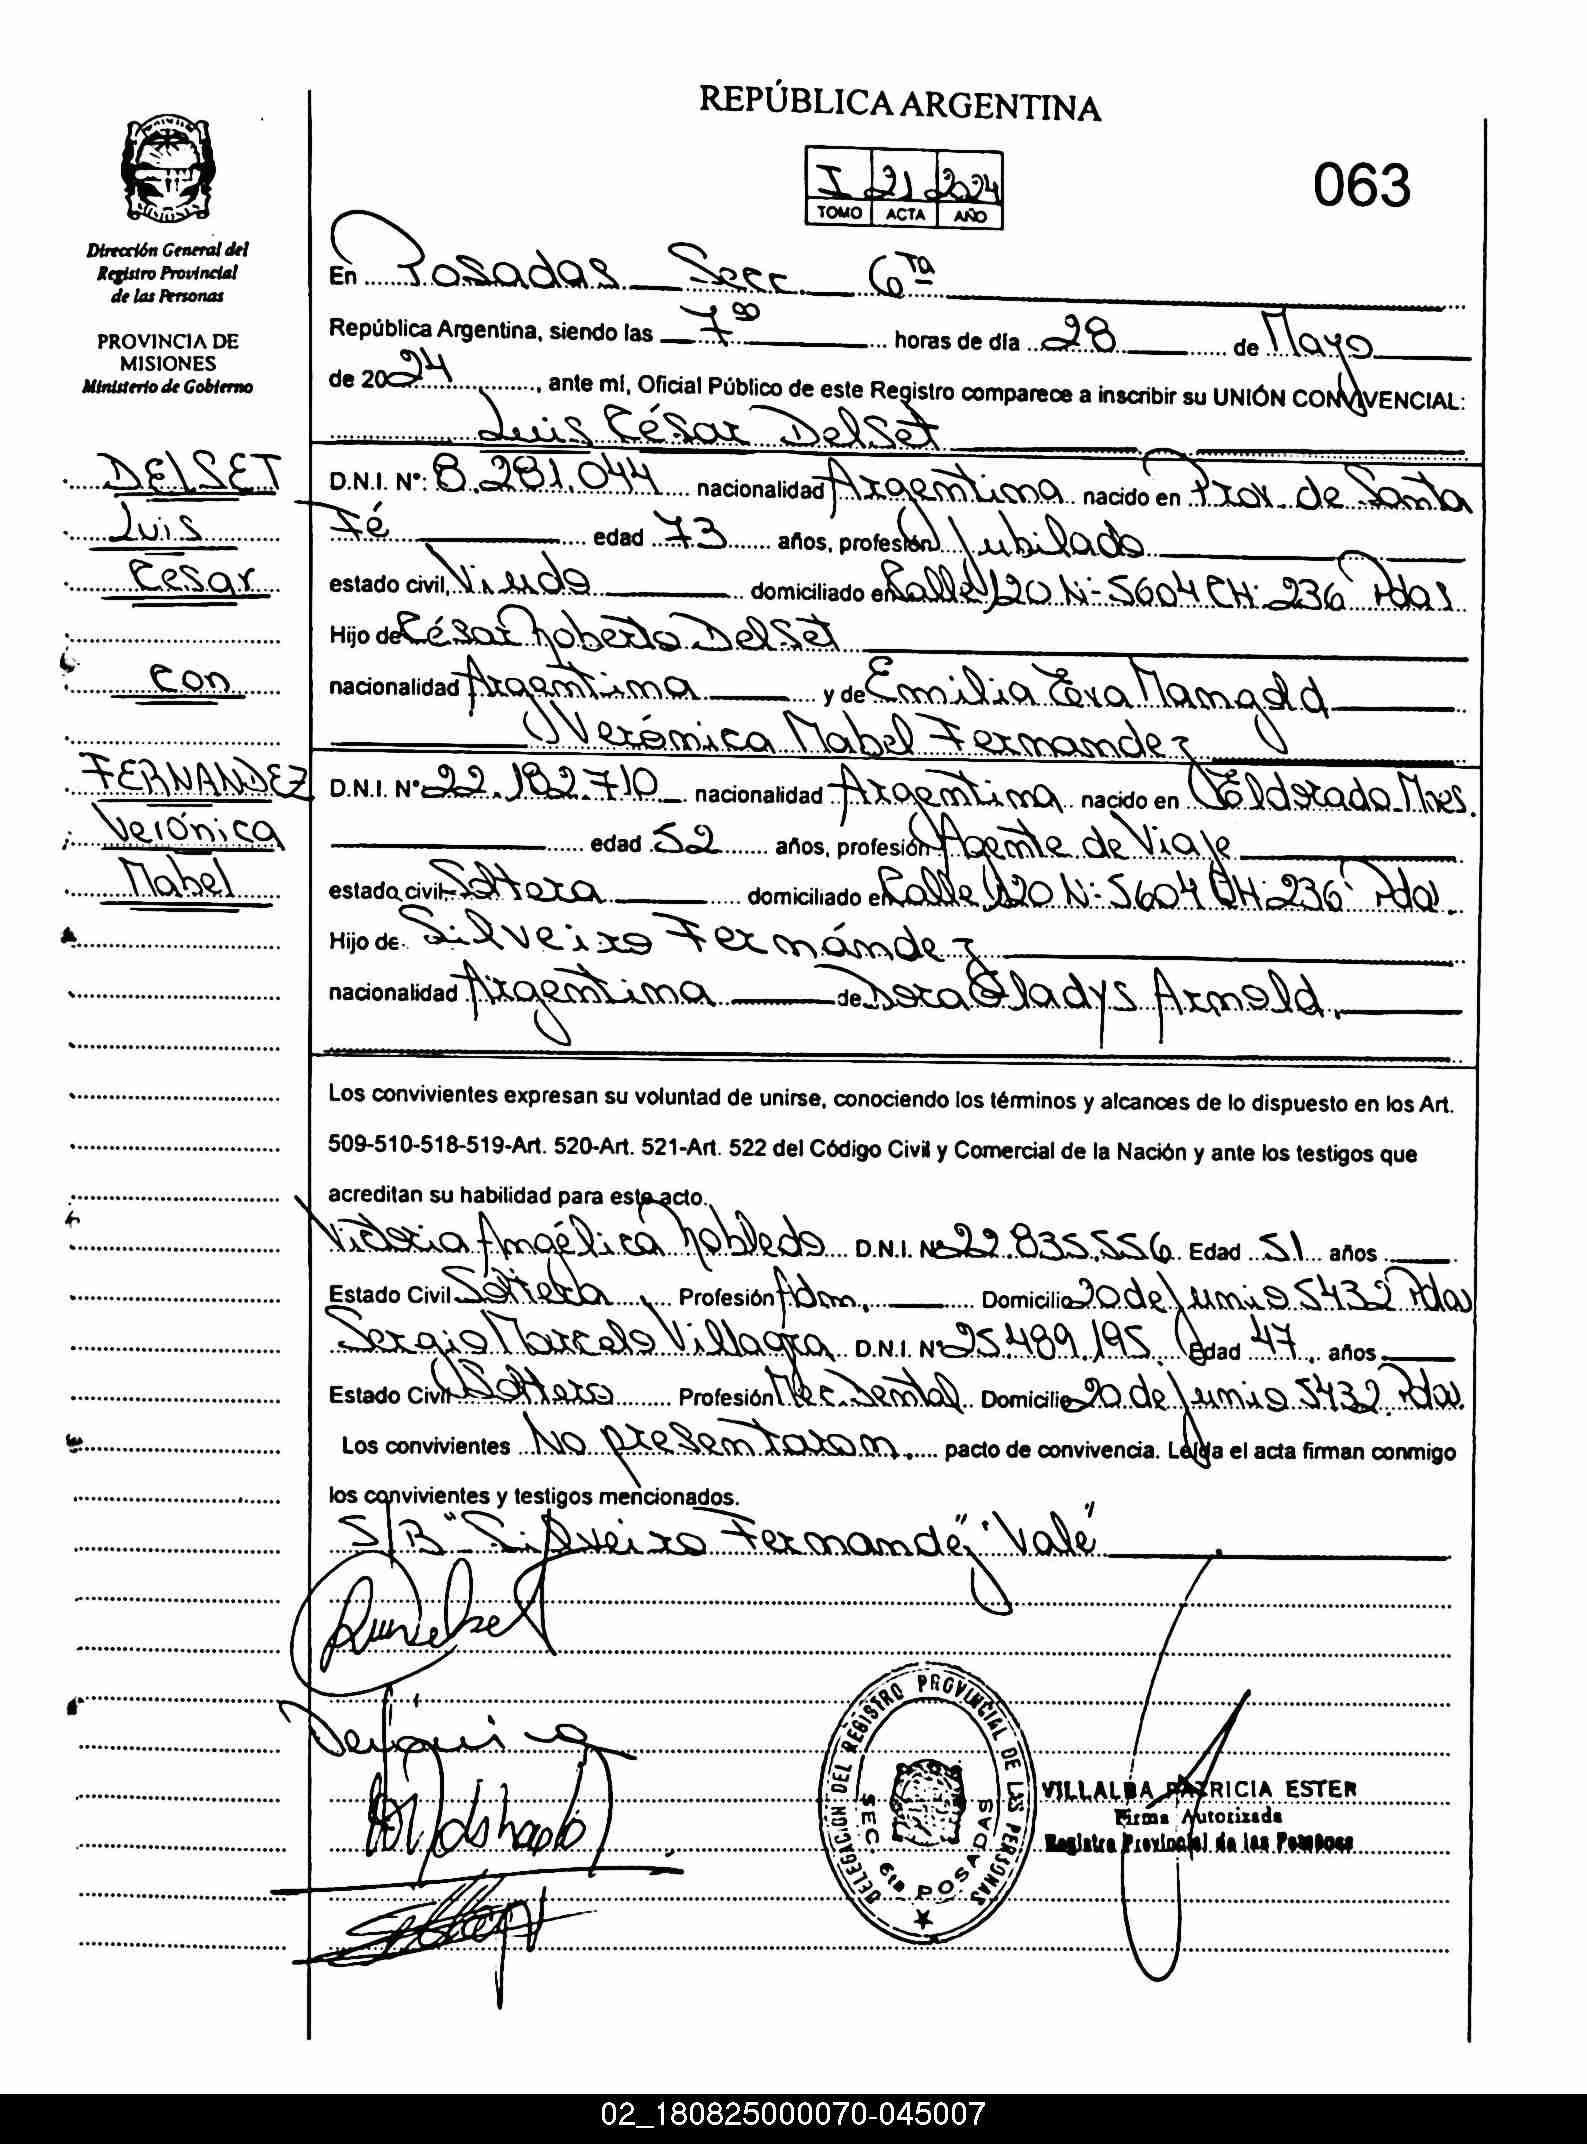 REPÚBLICA ARGENTINA
I 21 2024
TOMO ACTA AÑO
063
Dirección General del
Registro Provincial
de las Personas
PROVINCIA DE
MISIONES
Ministerio de Gobierno
DELSET
Luis
Cesar
con
FERNANDEZ
Verónica
Mabel
En Posadas Secc. 6ta
República Argentina, siendo las 7 00 horas de día 28 de Mayo
de 2024, ante mí, Oficial Público de este Registro comparece a inscribir su UNIÓN CONVIVENCIAL:
Luis César Delset
D.N.I. Nº: 8.281.044 nacionalidad Argentina nacido en Prov. de Santa
Fé edad 73 años, profesión Jubilado
estado civil, Viudo domiciliado en Calle 120 N: 5604 CH: 236 Pdas
Hijo de César Roberto Delset
nacionalidad Argentina y de Emilia Eva Mangold
Verónica Mabel Fernandez
D.N.I. Nº 22.182.710 nacionalidad Argentina nacido en Eldorado Mnes.
edad 52 años, profesión Agente de Viaje
estado civil, Soltera domiciliado en Calle 120 N: 5604 CH: 236 Pdas.
Hijo de Silveiro Fernández
nacionalidad Argentina de Dora Gladys Arnold.
Los convivientes expresan su voluntad de unirse, conociendo los términos y alcances de lo dispuesto en los Art.
509-510-518-519-Art. 520-Art. 521-Art. 522 del Código Civil y Comercial de la Nación y ante los testigos que
acreditan su habilidad para este acto.
Victoria Angélica Robledo D.N.I. Nº 22.835.556 Edad 51 años
Estado Civil Soltera Profesión Adm. Domicilio 20 de Junio 5432 Pdas
Sergio Marcelo Villagra D.N.I. Nº 25.489.195 Edad 47 años
Estado Civil Soltero Profesión Mec. Dental Domicilio 20 de Junio 5432 Pdas.
Los convivientes No presentaron pacto de convivencia. Leída el acta firman conmigo
los convivientes y testigos mencionados.
S/B "Silveiro Fernandez" "Vale"
DELEGACION DEL REGISTRO PROVINCIAL DE LAS PERSONAS
SEC. 6ta POSADAS
VILLALBA PATRICIA ESTER
Firma Autorizada
Registro Provincial de las Personas
02_180825000070-045007